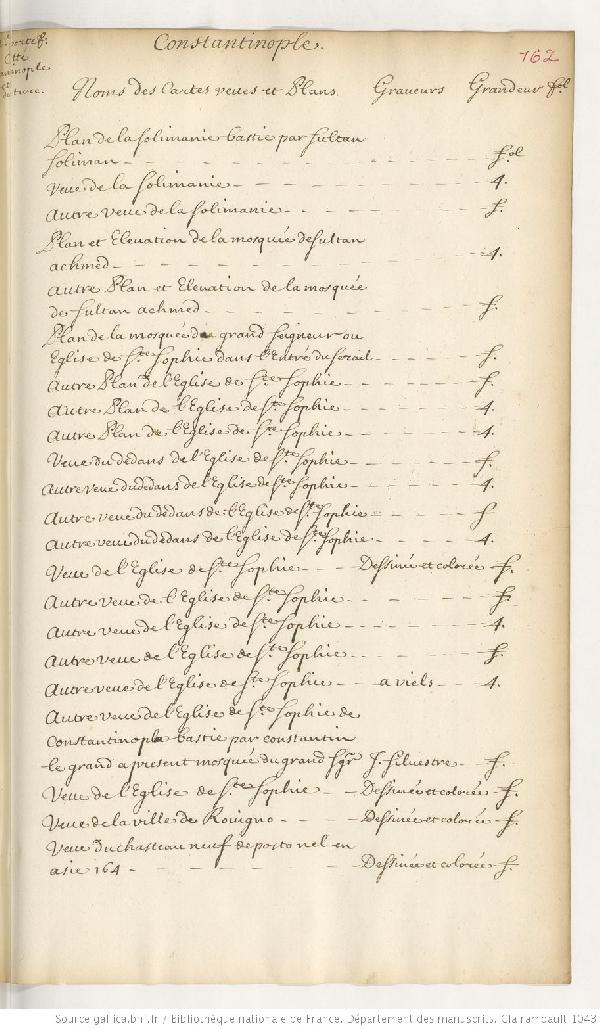 Constantinople.
162
Noms des Cartes veues et Plans Graveurs Grandeur fol
Plan de la solimanie bastie par sultan
soliman - fol
Veue de la solimanie - 4.
Autre veue de la solimanie - f.
Plan et Elevation de la mosquée de sultan
achmed - 4.
autre Plan et Elevation de la mosquée
de sultan achmed - f.
Plan de la mosquée du grand seigneur ou
Eglise de Ste Sophie dans l'Entré du serail - f.
Autre Plan de l'Eglise de Ste Sophie - f.
Autre Plan de l'Eglise de Ste Sophie - 4.
Autre Plan de l'Eglise de Ste Sophie - 4.
Veue du dedans de l'Eglise de Ste Sophie - f.
Autre veue du dedans de l'Eglise de Ste Sophie - 4.
Autre veue du dedans de l'Eglise de Ste Sophie - f
Autre veue du dedans de l'Eglise de Ste Sophie - 4.
Veue de l'Eglise de Ste Sophie - Dessinée et colorée f.
Autre veue de l'Eglise de Ste Sophie - f.
Autre veue de l'Eglise de Ste Sophie - 4.
Autre veue de l'Eglise de Ste Sophie - f.
Autre veue de l'Eglise de Ste Sophie - aviels - 4.
Autre veue de l'Eglise de Ste Sophie de
Constantinople bastie par constantin
le grand a present mosquée du grand sgr J. Silvestre - f.
Veue de l'Eglise de Ste Sophie - Dessinée et colorée f.
Veue de la ville de Rouigno - Dessinée et colorée f.
Veue du chasteau neuf de porto nel en
asie 164 - Dessinée et colorée f.
Source gallica.bnf.fr / Bibliothèque nationale de France. Département des manuscrits. Clairambault 1043